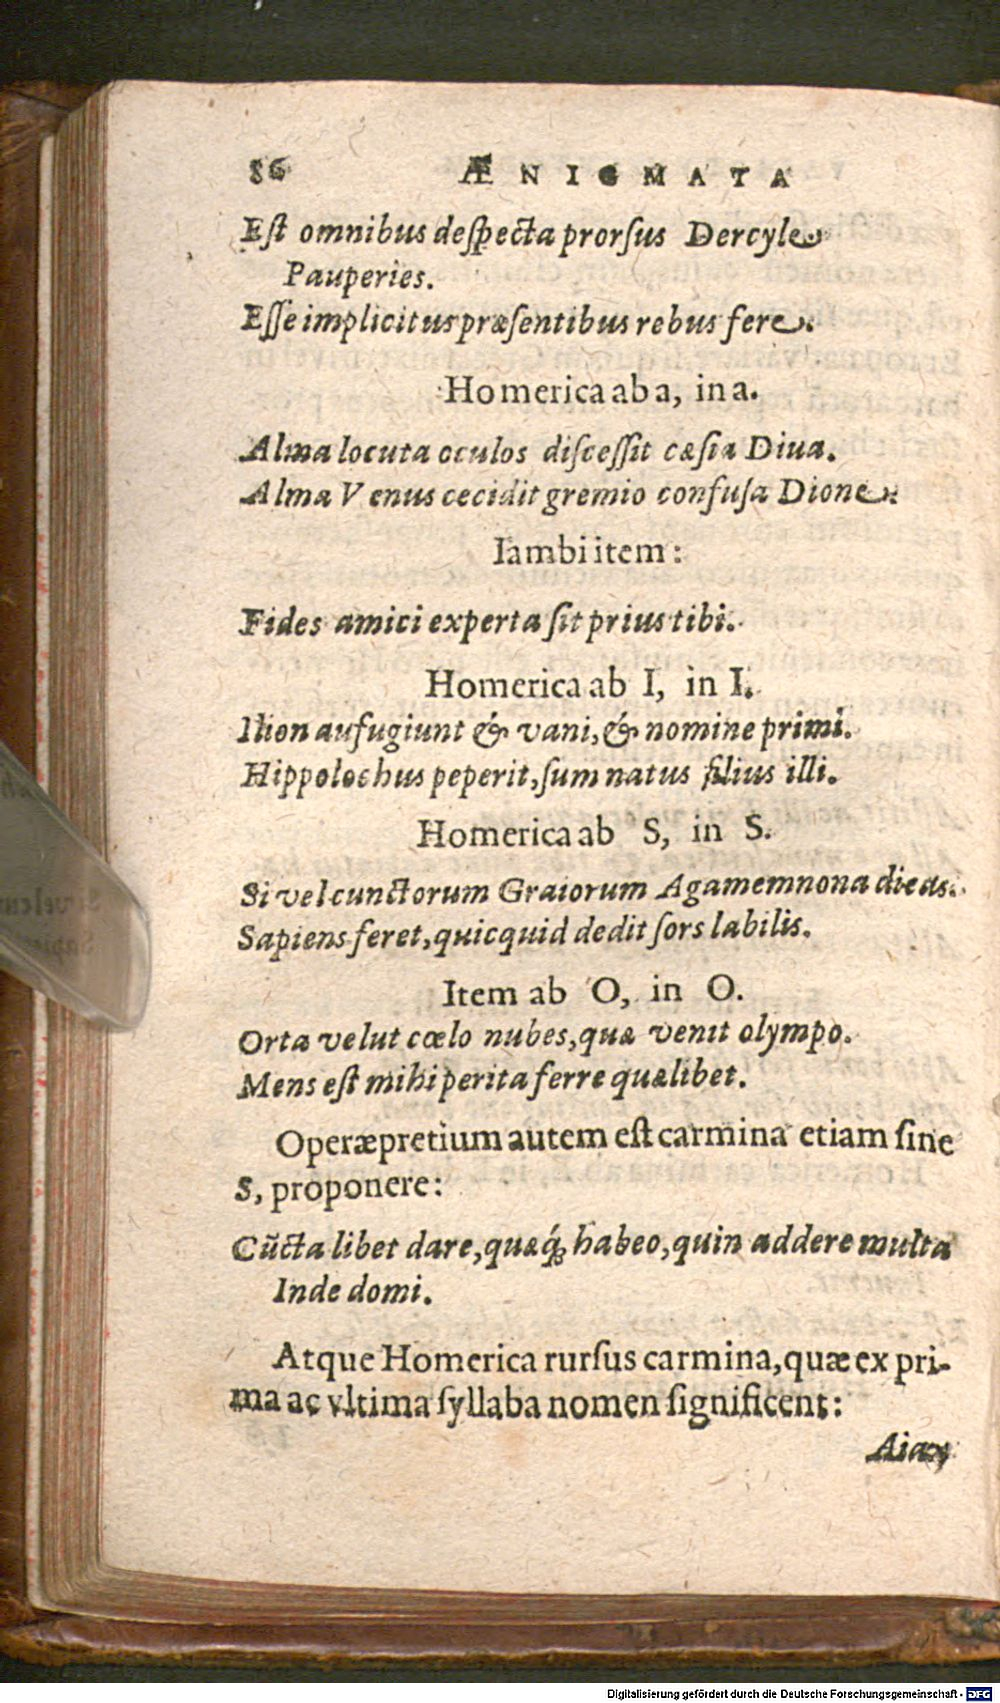 86 ÆNIGMATA
Eſt omnibus deſpecta prorſus Dercyle
Pauperies.
Eſſe implicitus præſentibus rebus fere.
Homerica ab a, in a.
Alma locuta oculos diſceſſit cæſia Diua.
Alma Venus cecidit gremio confuſa Dione
Iambi item:
Fides amici experta ſit prius tibi.
Homerica ab I, in I.
Ilion aufugiunt & vani, & nomine primi.
Hippolochus peperit, ſum natus filius illi.
Homerica ab S, in S.
Si vel cunctorum Graiorum Agamemnona dicas.
Sapiens feret, quicquid dedit ſors labilis.
Item ab O, in O.
Orta velut cœlo nubes, quæ venit olympo.
Mens eſt mihi perita ferre quælibet.
Operæpretium autem eſt carmina etiam ſine
S, proponere:
Cũcta libet dare, quæq́; habeo, quin addere multa
Inde domi.
Atque Homerica rurſus carmina, quæ ex pri-
ma ac vltima ſyllaba nomen ſignificent:
Aiax
Digitalisierung gefördert durch die Deutsche Forschungsgemeinschaft - DFG